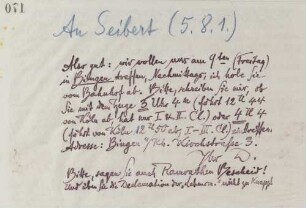 071
An Seibert (5.8.1.)
Also gut: wir wollen uns am 9ten (Freitag)
in Bingen treffen, Nachmittags, ich hole Sie
vom Bahnhof ab. Bitte, schreiben Sie mir, ob
Sie mit dem Zuge 3 Uhr 4 (fährt 12 44
von Köln ab, hat nur I u II. Cl.) oder 4
(fährt von Köln 12 ab, I–III. Cl.) eintreffen.
Adresse: Bingen Kirchstraße 3.
Ihr
Bitte, sagen Sie auch Bescheid!
Und üben Sie die Declamation der nicht zu